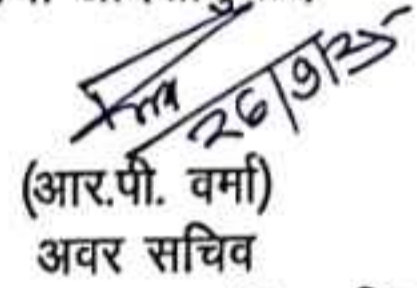 26/9/25
(आर.पी. वर्मा)
अवर सचिव